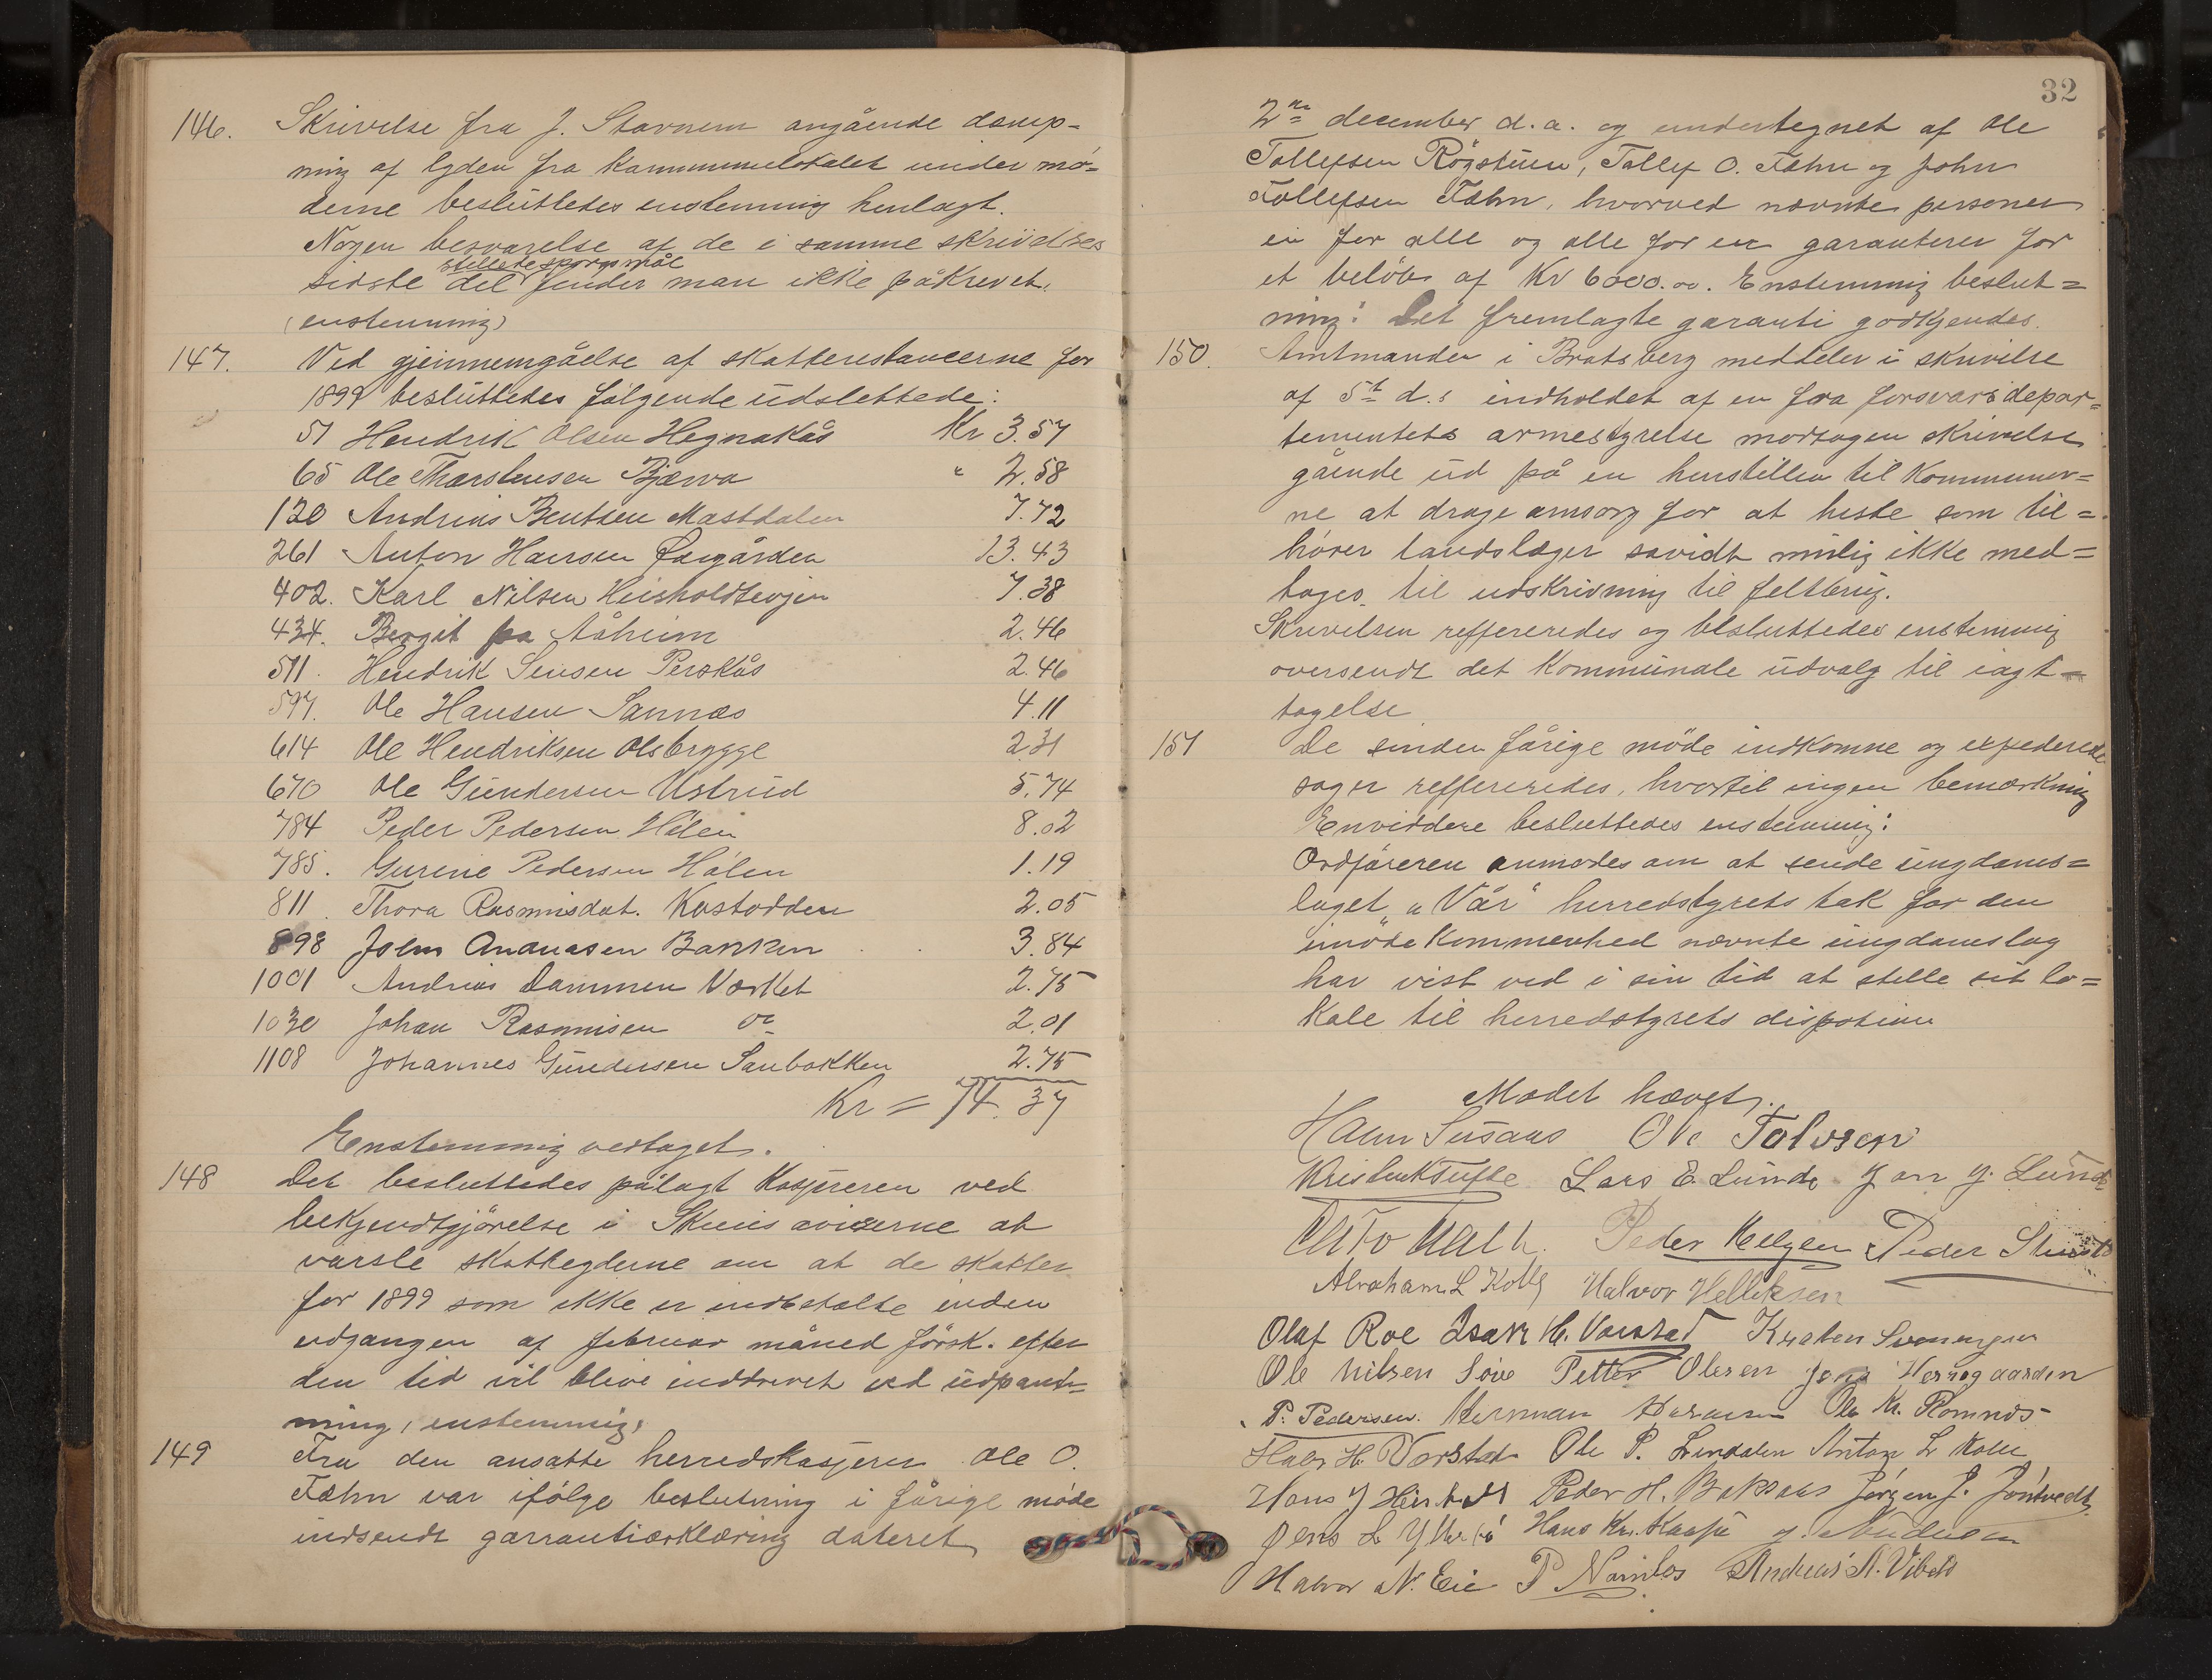 146. Skrivelse fra J. Stavnem angående dæmp-
ning af lyden fra kommunelokalet under mø-
derne besluttedes enstemmig henlagt.
Nogen besvarelse af de i samme skrivelses
stillede spørgsmål
sidste del finder man ikke påkrevet.
(enstemmig)
147. Ved gjennemgåelse af skatterestancerne for
1899 besluttedes følgende udslettede:
51 Hendrik Olsen Hegnakås Kr 3.57
65 Ole Thorstensen Bjærva " 2.58
120 Andreas Bentsen Mastdalen 7.72
261 Anton Hansen Øigården 13.43
402. Karl Nilsen Heisholdtevjen 7.38
434. Bergit på Åheim 2.46
511. Hendrik Jensen Perskås 2.46
597. Ole Hansen Sannæs 4.11
614 Ole Hendriksen Olsbrygge 2.31
670 Ole Gundersen Ustrud 5.74
784 Peder Pedersen Hølen 8.02
785. Gurine Pedersen Hølen 1.19
811. Thora Rasmusdat. Kastodden 2.05
898 John Ananasen Bakken 3.84
1001 Andreas Dammen Værket 2.75
1030 Johan Rasmusen do 2.01
1108 Johannes Gundersen Saubakken 2.75
Kr = 74.37
Enstemmig vedtaget.
148 Det besluttedes pålagt Kasjereren ved
bekjendtgjørelse i Skiens aviserne at
varsle skatteyderne om at de skatter
for 1899 som ikke er indbetalte inden
udgangen af februar måned førsk. efter
den tid vil blive inddrevet ved udpant-
ning, enstemmig,
149 Fra den ansatte herredskasjerer Ole O.
Fæhn var ifølge beslutning i førige møde
indsendt garrantiærklæring dateret
32
2den december d.a. og undertegnet af Ole
Tollefsen Rögstuen, Tollef O. Fæhn og John
Tollefsen Fæhn, hvorved nævnte personer
en for alle og alle for en garanterer for
et beløb af Kr 6000.00. Enstemmig beslut=
ning: Det fremlagte garanti godkjendes.
150. Amtmanden i Bratsberg meddeler i skrivelse
af 5te d.s indholdet af en fra forsvarsdepar=
tementets armestyrelse modtagen skrivelse
gående ud på en henstillen til Kommuner=
ne at drage omsorg for at heste som til=
hører landslæger savidt mulig ikke med=
tages til udskrivning til feltbrug.
Skrivelsen reffereredes og besluttedes enstemmig
oversendt det Kommunale udvalg til iagt=
tagelse.
151 De siden førige møde indkomne og expederede
sager reffereredes, hvortil ingen bemærkning
Enviddere besluttedes enstemmig:
Ordføreren anmodes om at sende ungdoms=
laget „Vår“ herredstyrets tak for den
imødekommenhed nævnte ungdomslag
har vist ved i sin tid at stille sit lo=
kale til herredstyrets dispotion
Mødet hævet.
Halvr Susaas Ole Tolvsen
Kristen K Tufte Lars E. Lunde Jon J. Lunde
Peder Helgen Peder
Abraham L Kolly Halvor Helliksen
Olaf Roe Isak H. Vorstad Kristen Svenungsen
Ole Nilsen Sõve Petter Olsen Jens Hernogaarden
P. Pedersen. Herman Ole K. Romnæs
Halv H. Vorstad Ole P. Lindalen Anton L Kolle
Hans J Peder H. Bakaas Jörgen J. Jöntvedt
Jens L Hans Kr. Kaasa J.
Halvor N. Eie P Namløs Andreas A. Vibeto